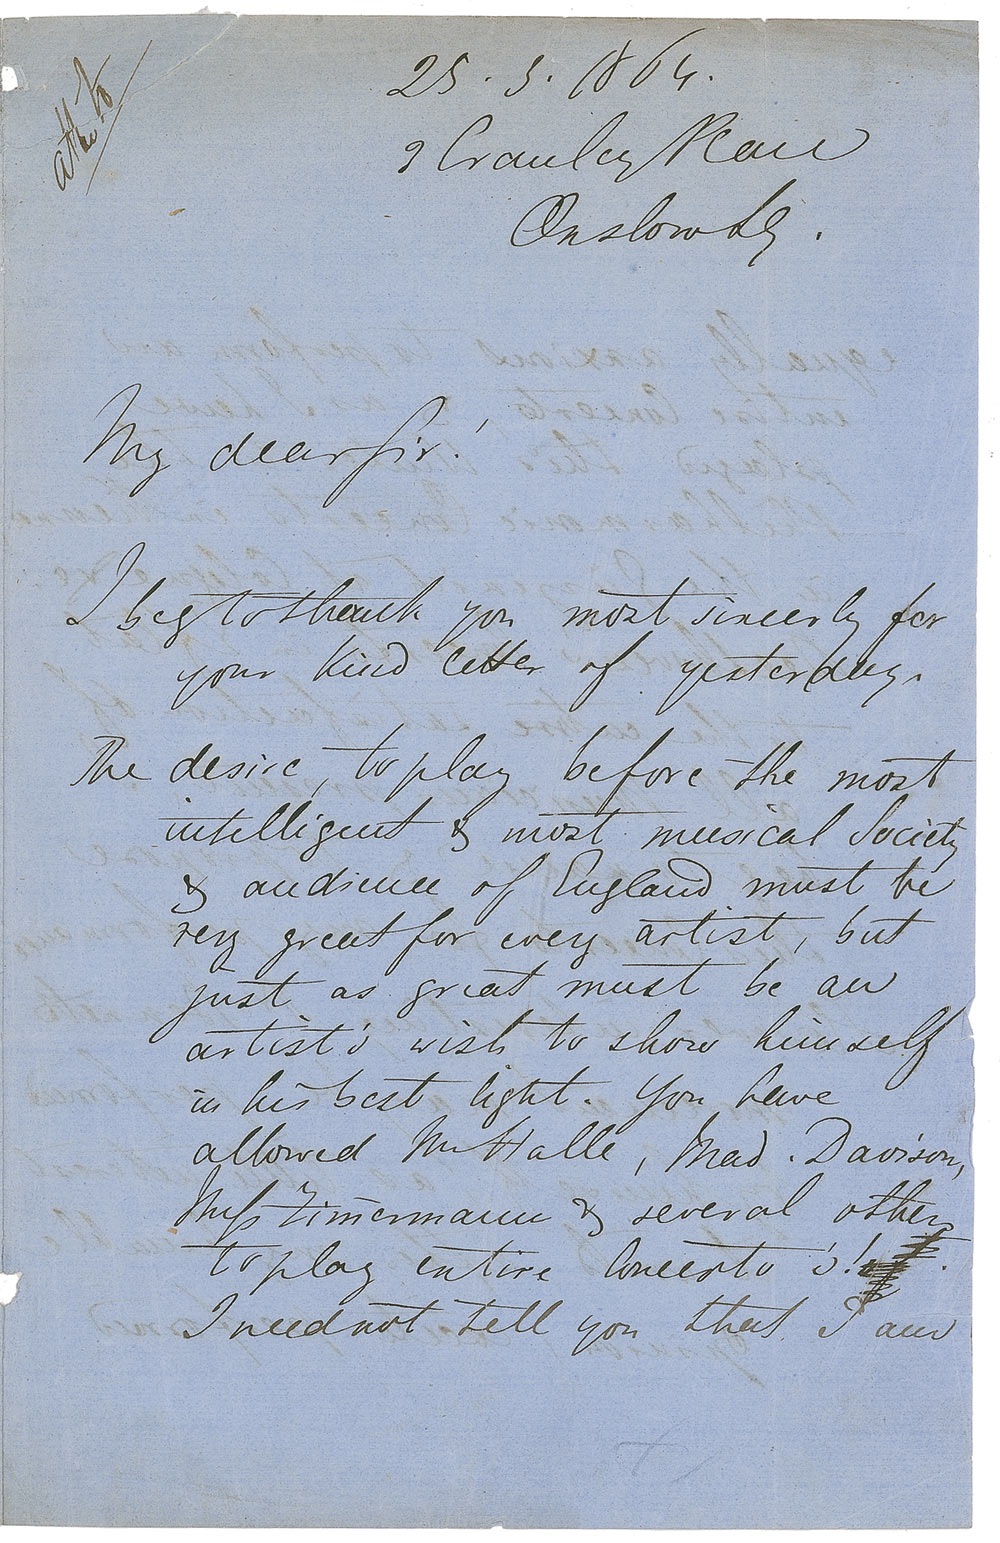 attn to
25. 5. 1864.
9 Cranley Place
Onslow Sq.
My dear Sir!
I beg to thank you most sincerly for
your kind letter of yesterday.
The desire, to play before the most
intelligent & most musical Society
& audience of England must be
very great for every artist, but
just as great must be an
artist's wish to show himself
in his best light. You have
allowed Mr Halle, Mad. Davison,
Miss Zimermann & several others
to play entire Concerto's!
I need not tell you that I am